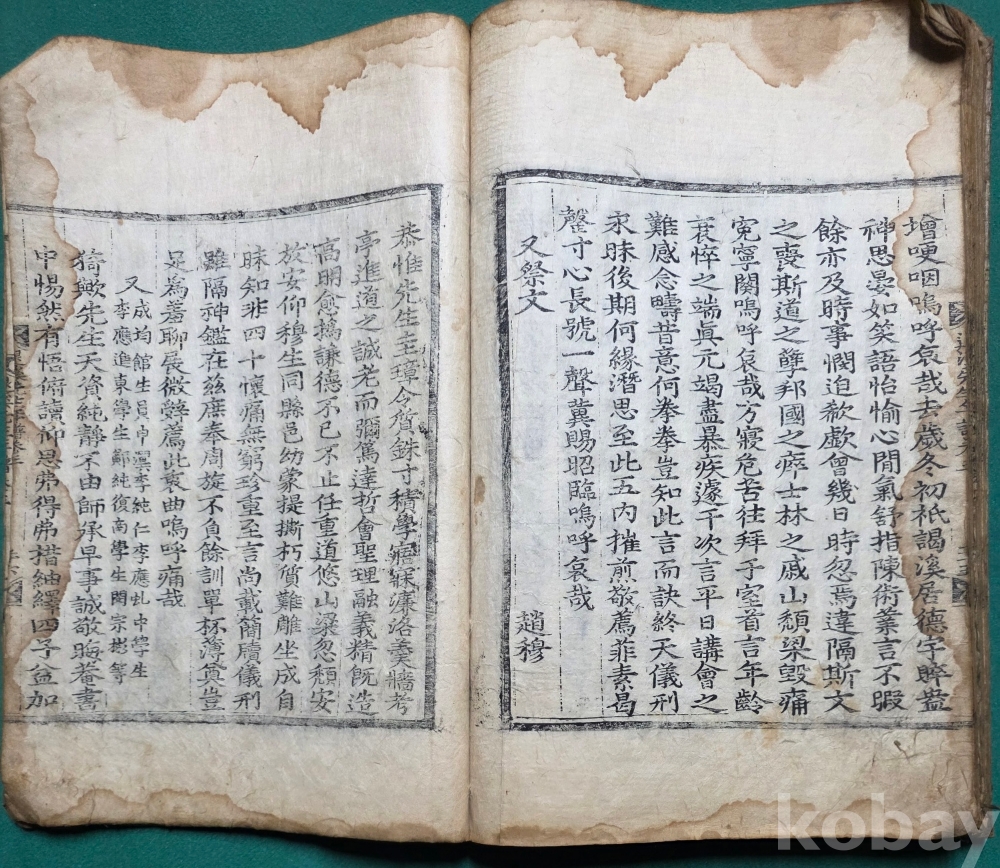 墖哽咽嗚呼哀哉去歲冬初祇謁溪居德宇睟盎
神思晏如笑語怡愉心閒氣舒指陳術業言不暇
餘亦及時事憫迫欷歔曾幾日時忽焉違隔斯文
之喪斯道之孼邦國之瘁士林之戚山頹梁毀痛
寃寧闋嗚呼哀哉方寢危苦往拜于室首言年齡
衰悴之端眞元竭盡暴疾遽干次言平日講會之
難感念疇昔意何拳拳豈知此言而訣終天儀刑
永昧後期何緣潛思至此五內摧煎敬薦菲素曷
罄寸心長號一聲冀賜昭臨嗚呼哀哉
又祭文 趙穆
恭惟先生圭璋令質銖寸積學寤寐濂洛羹牆考
亭進道之誠老而彌篤達哲會聖理融義精旣造
高明愈撝謙德不已不止任重道悠山梁忽頹安
放安仰穆生同縣邑幼蒙提撕朽質難雕坐成自
昧知非四十懷痛無窮珍重至言尚載簡牘儀刑
雖隔神鑑在玆庶奉周旋不負餘訓單杯薄奠豈
足爲羞聊展微聲薦此哀曲嗚呼痛哉
又 成均館生員申 李純仁李應虬中學生
李應進東學生鄭純復南學生閔宗彬等
猗歟先生天資純靜不由師承早事誠敬晦菴書
中惕然有悟俯讀仰思弗得弗措紬繹四子益加
kobay